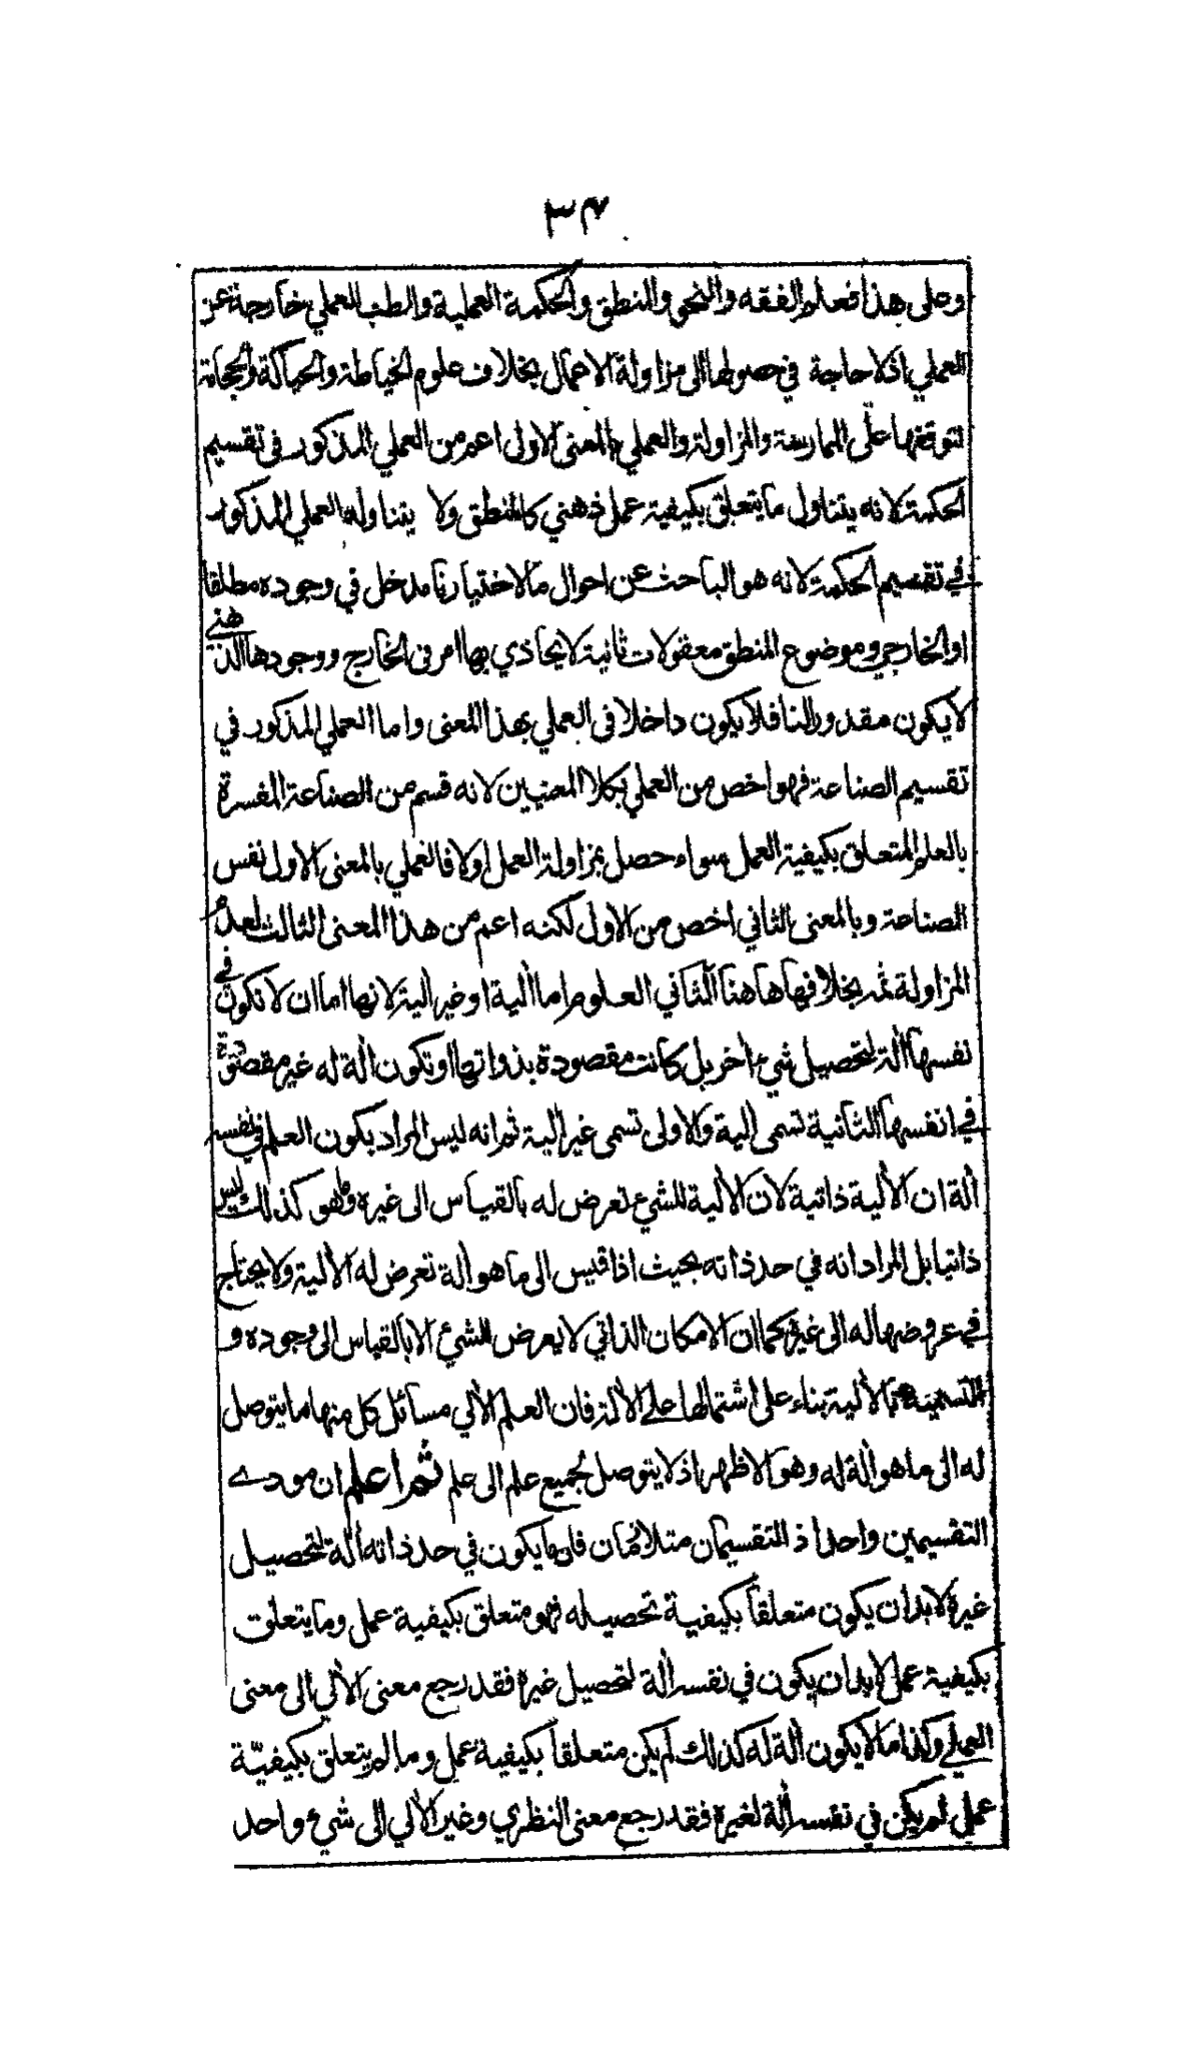 ٣٤
وعلى هذا فعلم الفقه والنحو والمنطق والحكمة العملية والطب العملي خارجة عن
العملي اذ لا حاجة في حصولها الى مزاولة الاعمال بخلاف علوم الخياطة والحياكة والحجامة
لتوقفها على الممارسة والمزاولة والعملي بالمعنى الاول اعم من العملي المذكور في تقسيم
الحكمة لانه يتناول ما يتعلق بكيفية عمل ذهني كالمنطق ولا يتناوله العملي المذكور
في تقسيم الحكمة لانه هو الباحث عن احوال ما لاختيارنا مدخل في وجوده مطلقا
او الخارجي وموضوع المنطق معقولات ثانية لا يحاذي بها امر في الخارج ووجودها الذهني
لا يكون مقدورا لنا فلا يكون داخلا في العملي بهذا المعنى واما العملي المذكور في
تقسيم الصناعة فهو اخص من العملي بكلا المعنيين لانه قسم من الصناعة المفسرة
بالعلم المتعلق بكيفية العمل سواء حصل بمزاولة العمل او لا فالعملي بالمعنى الاول نفس
الصناعة وبالمعنى الثاني اخص من الاول لكنه اعم من هذا المعنى الثالث لعدم
المزاولة ثمه بخلافها ههنا الثاني العلوم اما آلية او غير آلية لانها اما ان لا تكون في
نفسها آلة لتحصيل شيء آخر بل كانت مقصودة بذواتها او تكون آلة له غير مقصودة
في انفسها الثانية تسمى آلية والاولى تسمى غير آلية ثم انه ليس المراد بكون العلم في نفسه
آلة ان الآلية ذاتية لان الآلية للشيء تعرض له بالقياس الى غيره وما هو كذلك ليس
ذاتيا بل المراد انه في حد ذاته بحيث اذا قيس الى ما هو آلة تعرض له الآلية ولا يحتاج
في عروضها له الى غيره كما ان الامكان الذاتي لا يعرض للشيء الا بالقياس الى وجوده و
التسمية بالآلية بناء على اشتمالها على الآلة فان العلم الآلي مسائل كل منها ما يتوصل
له الى ما هو آلة له وهو الاظهر اذ لا يتوصل بجميع علم الى علم ثم اعلم ان مودے
التقسيمين واحد اذ التقسيمان متلازمان فان ما يكون في حد ذاته آلة لتحصيل
غيره لا بد ان يكون متعلقاً بكيفية تحصيله فهو متعلق بكيفية عمل وما يتعلق
بكيفية عمل لا بد ان يكون في نفسه آلة لتحصيل غيره فقد رجع معنى الآلي الى معنى
العملے وكذا ما لا يكون آلة له كذلك لم يكن متعلقاً بكيفية عمل وما لم يتعلق بكيفيّة
عمل لم يكن في نفسه آلة لغيره فقد رجع معنى النظري وغير الآلي الى شيء واحد